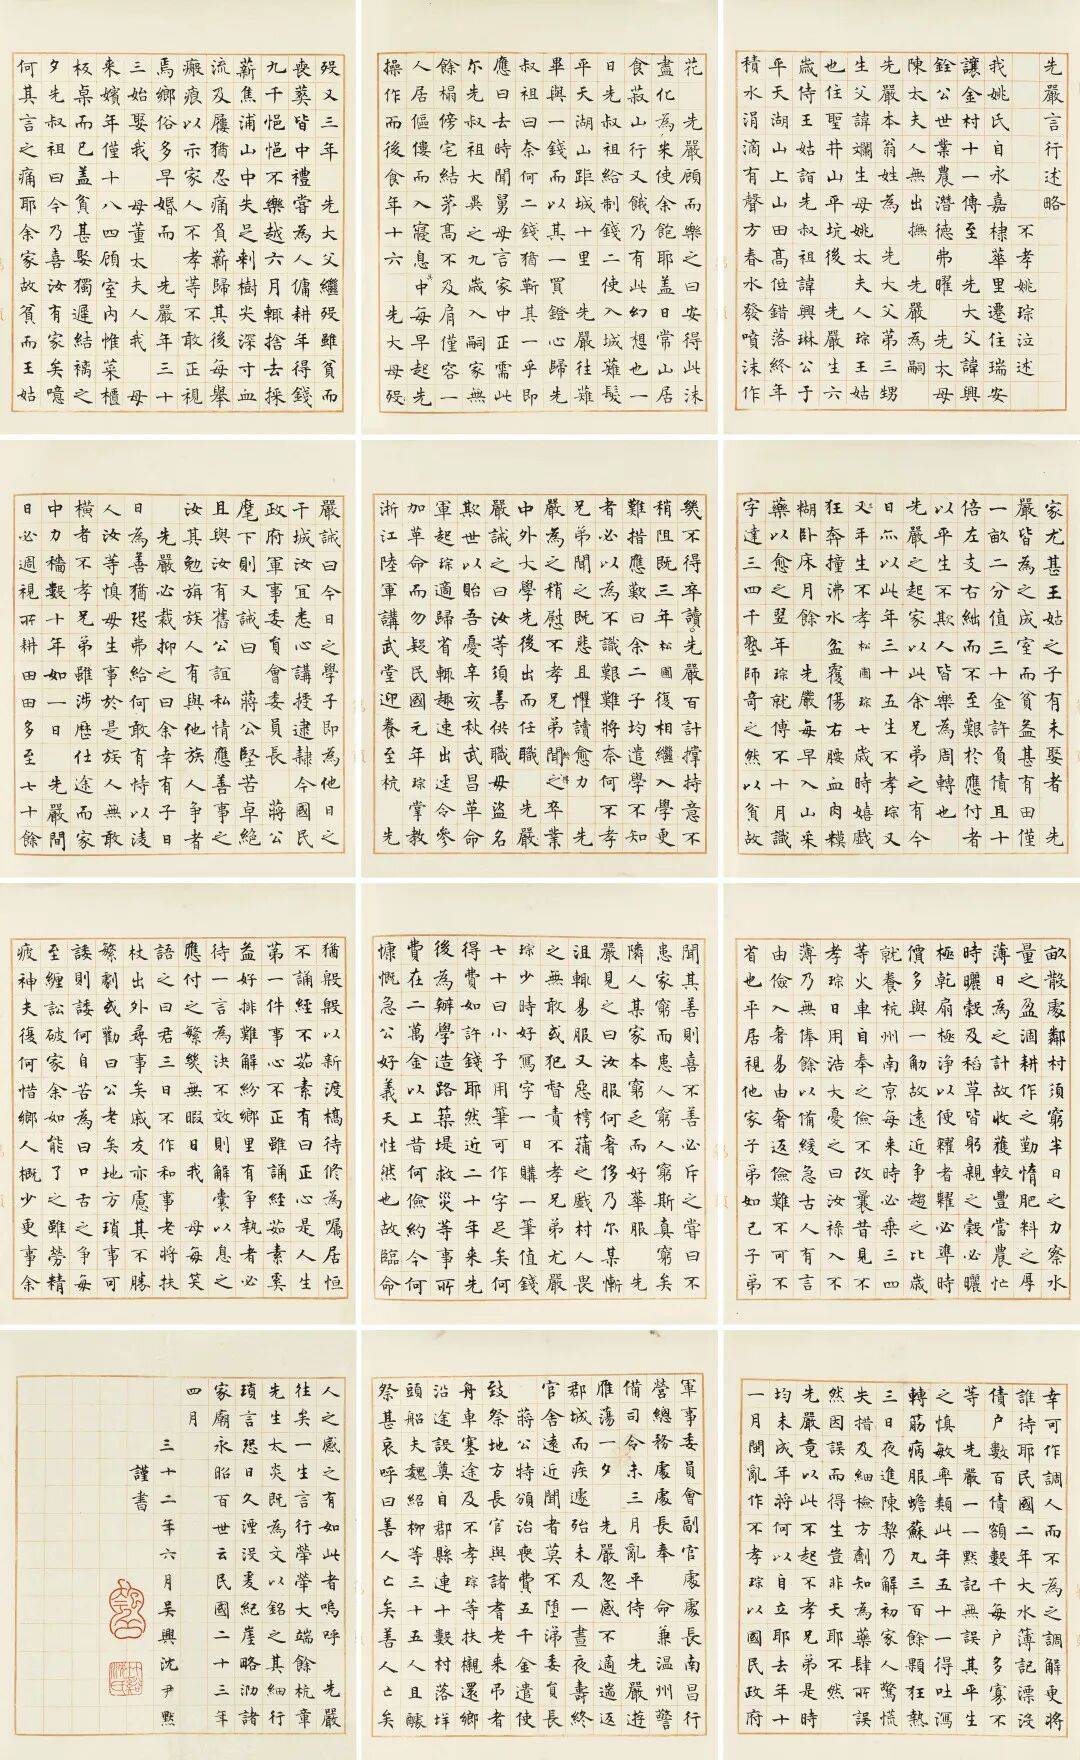 先嚴言行述略
不孝姚琮泣述
我姚氏自永嘉棣華里遷住瑞安
讓金村十一傳至 先大父諱興
銓公世業農潛德弗曜 先太母
陳太夫人無出撫 先嚴為嗣
先嚴本翁姓為 先大父弟三甥
生父諱斕生母姚太夫人琮王姑
也住聖井山平坑後 先嚴生六
歲侍王姑詣先叔祖諱興琳公于
平天湖山上山田高低錯落終年
積水涓滴有聲方春水發噴沫作
花 先嚴顧而樂之曰安得此沫
盡化為米使余飽耶蓋日常山居
食菽山行又餓乃有此幻想也一
日先叔祖給制錢二使入城薙髮
平天湖山距城十里 先嚴往薙
畢與一錢而以其一買鐙心歸先
叔祖曰奈何二錢猶靳其一乎即
應曰去時聞舅母言家中正需此
尔先叔祖大異之九歲入嗣家無
餘榻傍宅結茅高不及肩僅容一
人居傴僂而入寢息中每早起先
操作而後食年十六 先大母殁
殁又三年 先大父繼殁雖貧而
喪葬皆中禮嘗為人傭耕年得錢
九千悒悒不樂越六月輒捨去採
薪焦浦山中失足刺樹尖深寸血
流及屨猶忍痛負薪歸其後每舉
瘢痕以示家人不孝等不敢正視
焉鄉俗多早婚而 先嚴年三十
三始娶我 母董太夫人我 母
来嬪年僅十八四顧室內惟菜櫃
板桌而已蓋貧甚娶獨遲結褵之
夕先叔祖曰今乃喜汝有家矣噫
何其言之痛耶余家故貧而王姑
家尤甚王姑之子有未娶者 先
嚴皆為之成室而貧益甚有田僅
一畝二分值三十金許負債且十
倍左支右絀而不至艱於應付者
以平生不欺人人皆樂為周轉也
先嚴之起家以此余兄弟之有今
日亦以此年三十五生不孝琮又
又年生不孝松圃琮七歲時嬉戲
狂奔撞沸水盆覆傷右腰血肉模
糊卧床月餘 先嚴每早入山采
藥以愈之翌年琮就傅不十月識
字達三四千塾師奇之然以貧故
幾不得卒讀先嚴百計撐持意不
稍阻既三年松圃復相繼入學更
難措應歎曰余二子均遣學不知
者必以為不識艱難將奈何不孝
兄弟聞之既悲且懼讀愈力 先
嚴為之稍慰不孝兄弟聞之卒業
中外大學先後出而任職 先嚴
嚴誡之曰汝等須善供職毋盜名
欺世以貽吾憂辛亥秋武昌革命
軍起琮適歸省輒趣速出迋令參
加革命而勿疑民國元年琮掌教
浙江陸軍講武堂迎養至杭 先
嚴誡曰今日之學子即為他日之
干城汝宜悉心講授逮隸今國民
政府軍事委員會委員長 蔣公
麾下則又誡曰 蔣公堅苦卓絕
且與汝有舊公誼私情應善事之
汝其勉旃族人有與他族人爭者
先嚴必裁抑之曰余幸有子日
日為善猶恐弗給何敢有恃以凌
人汝等慎毋生事於是族人無敢
橫者不孝兄弟雖涉歷仕途而家
中力穡數十年如一日 先嚴間
日必週視所耕田田多至七十餘
畝散處鄰村須窮半日之力察水
量之盈涸耕作之勤惰肥料之厚
薄日為之計故收獲較豐當農忙
時曬穀及稻草皆躬親之穀必曬
極乾扇極淨以便糶者糶必準時
價多與一觔故遠近爭趨之比歲
就養杭州南京每来時必乘三四
等火車自奉之儉不改曩昔見不
孝琮日用浩大憂之曰汝祿入不
薄乃無俸餘以備緩急古人有言
由儉入奢易由奢返儉難不可不
省也平居視他家子弟如己子弟
聞其善則喜不善必斥之嘗曰不
患家窮而患人窮人窮斯真窮矣
隣人某家本窮乏而好華服 先
嚴見之曰汝服何奢侈乃尔某慚
沮輒易服又惡樗蒱之戲村人畏
之無敢或犯督責不孝兄弟尤嚴
琮少時好寫字一日購一筆值錢
七十曰小子用筆可作字足矣何
得費如許錢耶然近二十年来先
後為辦學造路築堤救災等事所
費在二萬金以上昔何儉約今何
慷慨急公好義天性然也故臨命
猶殷殷以新渡橋待修為囑居恒
不誦經不茹素有曰正心是人生
第一件事心不正雖誦經茹素奚
益好排難解紛鄉里有爭執者必
待一言為決不效則解囊以息之
應付之繁幾無暇日我 母每笑
語之曰君三日不作和事老將扶
杖出外尋事矣戚友亦慮其不勝
繁劇或勸曰公老矣地方瑣事可
諉則諉何自苦為曰口舌之爭每
至纏訟破家余如能了之雖勞精
疲神夫復何惜鄉人概少更事余
幸可作調人而不為之調解更將
誰待耶民國二年大水薄記漂沒
債户數百債額數千每户多寡不
等 先嚴一一點記無誤其平生
之慎敏率類此年五十一得吐瀉
轉筋病服蟾蘇丸三百餘顆狂熱
三日夜進陳藜乃解初家人驚慌
失措及細檢方劑知為藥肆所誤
然因誤而得生豈非天耶不然
先嚴竟以此不起不孝兄弟是時
均未成年將何以自立耶去年十
一月閩亂作不孝琮以國民政府
軍事委員會副官處處長南昌行
營總務處處長奉 命兼温州警
備司令未三月亂平侍 先嚴遊
雁蕩一夕 先嚴忽感不適遄返
郡城而疾遽殆未及一晝夜壽終
官舍遠近聞者莫不堕涕委員長
蔣公特頒治喪費五千金遣使
致祭地方長官與諸耆老来弔者
舟車塞途及不孝琮等扶櫬還鄉
沿途設奠自郡縣連十數村落垟
頭船夫魏紹柳等三十五人且醵
祭甚哀呼曰善人亡矣善人亡矣
人之感之有如此者嗚呼 先嚴
往矣一生言行犖犖大端餘杭章
先生太炎既為文以銘之其細行
瑣言恐日久湮沒爰紀崖略泐諸
家廟永昭百世云民國二十三年
四月
三十二年六月吳興沈尹默
謹書